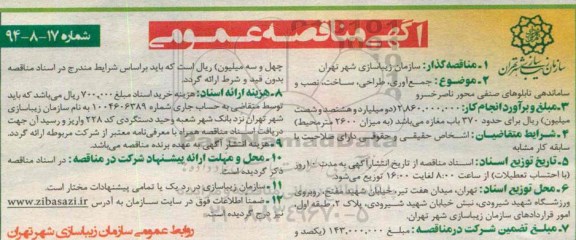 آگهی مناقصه عمومی
شماره ۱۷-۸-۹۴
سازمان زیباسازی شهر تهران
۱- مناقصه گذار: سازمان زیباسازی شهر تهران
۲- موضوع: جمع‌آوری، طراحی، ساخت، نصب و
ساماندهی تابلوهای صنفی محور ناصرخسرو
۳- مبلغ و برآورد انجام کار: ۲/۸۶۰/۰۰۰/۰۰۰ (دو میلیارد و هشتصد و شصت
میلیون) ریال برای حدود ۳۷۰ باب مغازه می‌باشد (به میزان ۲۶۰۰ مترمحیط)
۴- شرایط متقاضیان: اشخاص حقیقی و حقوقی دارای صلاحیت با
سابقه کار مشابه
۵- تاریخ توزیع اسناد: اسناد مناقصه از تاریخ انتشار آگهی به مدت ۱۰ روز
(با احتساب تعطیلات) از ساعت ۸:۰۰ لغایت ۱۶:۰۰ توزیع می‌شود.
۶- محل توزیع اسناد: تهران، میدان هفت تیر، خیابان شهید مفتح، روبروی
ورزشگاه شهید شیرودی، نبش خیابان شهید شیرودی، پلاک ۲، طبقه اول،
امور قراردادهای سازمان زیباسازی شهر تهران.
۷- مبلغ تضمین شرکت در مناقصه: مبلغ ۱۴۳/۰۰۰/۰۰۰ (یکصد و
چهل و سه میلیون) ریال است که باید براساس شرایط مندرج در اسناد مناقصه
بدون قید و شرط ارائه گردد.
۸- هزینه ارائه اسناد: هزینه خرید اسناد مبلغ ۷۰۰/۰۰۰ ریال می‌باشد که باید
توسط متقاضی به حساب جاری شماره ۱۰۰۴۶۰۶۳۸۹ به نام سازمان زیباسازی
شهر تهران نزد بانک شهر شعبه وحید دستگردی کد ۲۲۸ واریز و رسید آن جهت
دریافت اسناد مناقصه همراه با معرفی‌نامه معتبر از شرکت مربوطه ارائه گردد.
۹- هزینه انتشار آگهی به عهده برنده مناقصه می‌باشد.
۱۰- محل و مهلت ارائه پیشنهاد شرکت در مناقصه: در اسناد مناقصه
ذکر گردیده است.
۱۱- سازمان زیباسازی در رد یک یا تمامی پیشنهادات مختار است.
۱۲- ضمنا اطلاعات فوق در سایت سازمان به آدرس www.zibasazi.ir
نیز درج گردیده است.
روابط عمومی سازمان زیباسازی شهر تهران